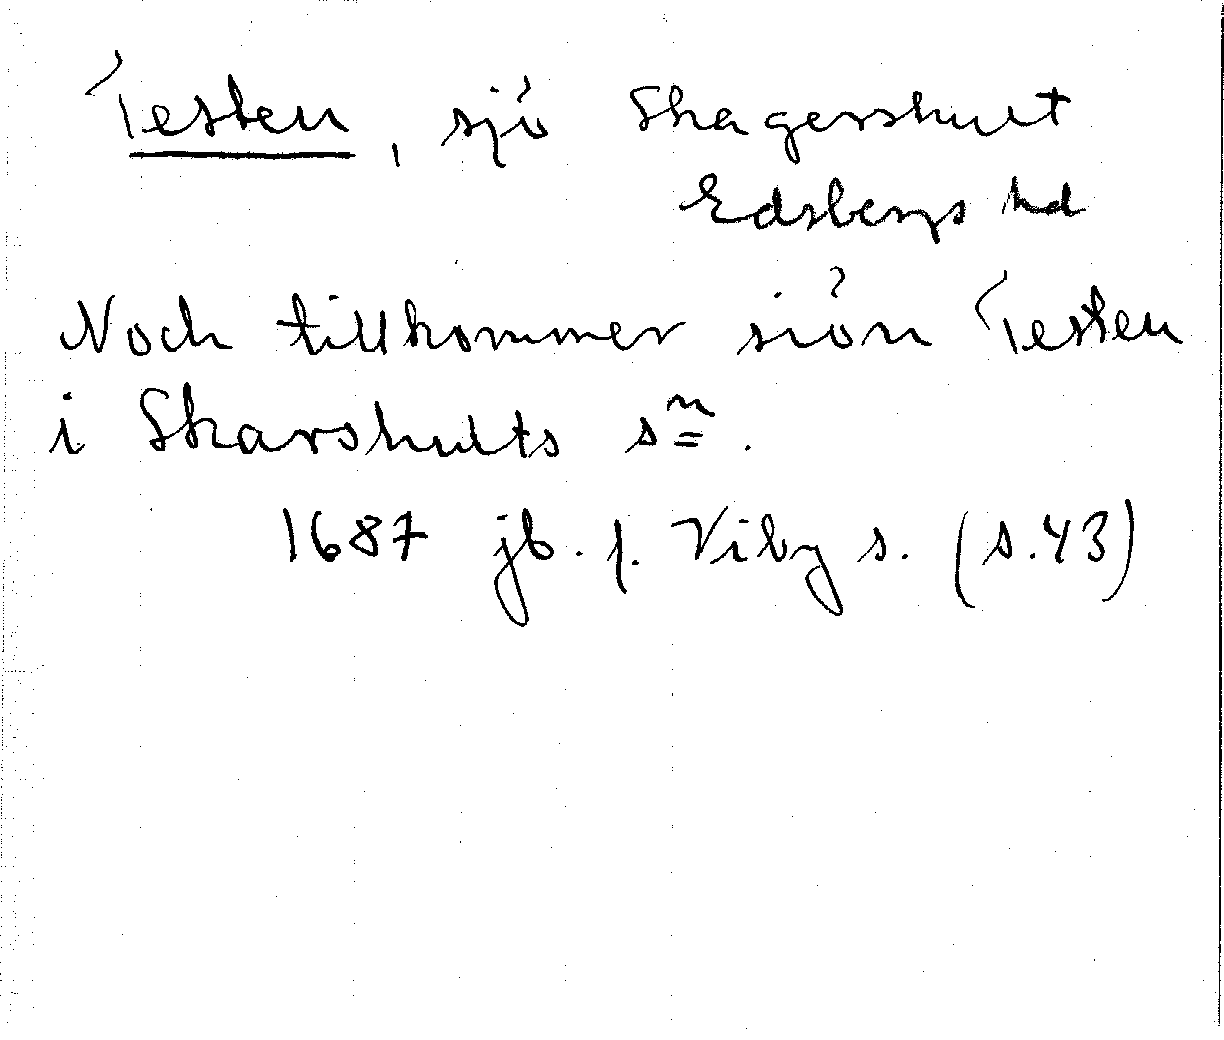 Testen, sjö Skagershult
Edsbergs hd
Noch tillkommer siön Testen
i Skarshults sn.
1687 jb. f. Viby s. (s.43)